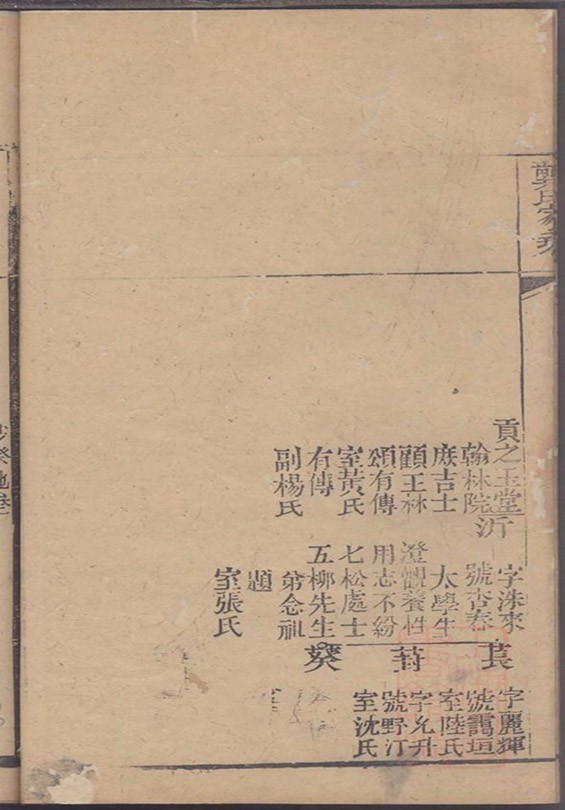 龔氏家乘
貢之玉堂
翰林院
庶吉士
顧王霖
頌有傳
室黃氏
有傳
副楊氏
沂
字洙來
號杏春
太學生
澄觀養性
用志不紛
七松處士
五柳先生
弟念祖
題
室張氏
字麗輝
號靄垣
室陸氏
字允升
號野汀
室沈氏
葵